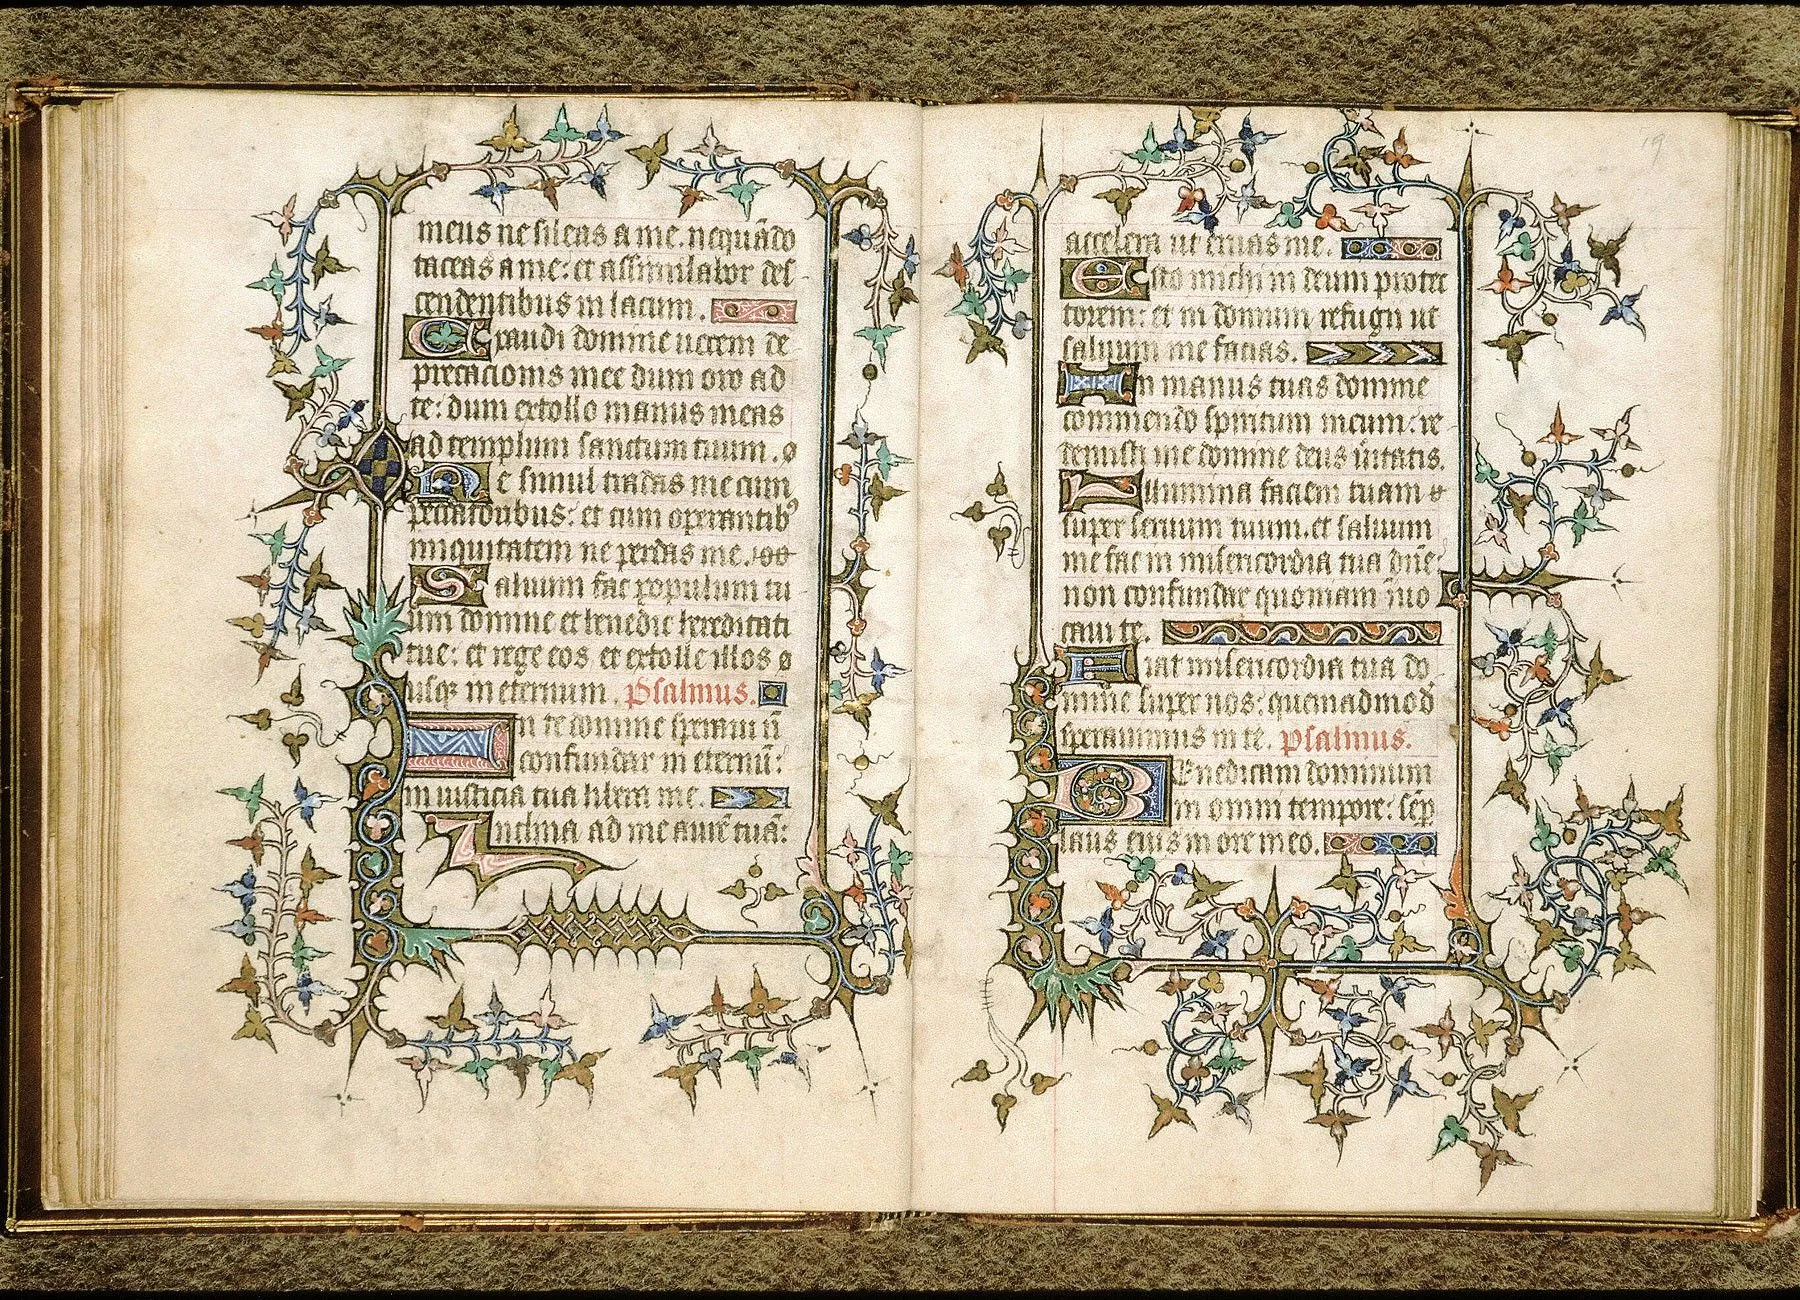 meus ne sileas a me. nequādo
taceas a me: et assimilabor des
cendentibus in lacum.
Exaudi domine uocem de
precacionis mee dum oro ad
te: dum extollo manus meas
ad templum sanctum tuum.
Ne simul tradas me cum
peccatoribus: et cum operantibꝰ
iniquitatem ne perdas me.
Saluum fac populum tu
um domine et benedic hereditati
tue: et rege eos et extolle illos
usqꝫ in eternum. Psalmus.
In te domine speraui nō
confundar in eternū:
in iusticia tua libera me.
Inclina ad me aurē tuā:
19
accelera ut eruas me.
Esto michi in deum protec
torem: et in domum refugii ut
saluum me facias.
In manus tuas domine
commendo spiritum meum: re
demisti me domine deus ūitatis.
Illumina faciem tuam
super seruum tuum. et saluum
me fac in misericordia tua dn̄e:
non confundar quoniam īuo
caui te.
Fiat misericordia tua do
mine super nos: quemadmod̄
sperauimus in te. psalmus.
Benedicam dominum
in omni tempore: sēp
laus eius in ore meo.